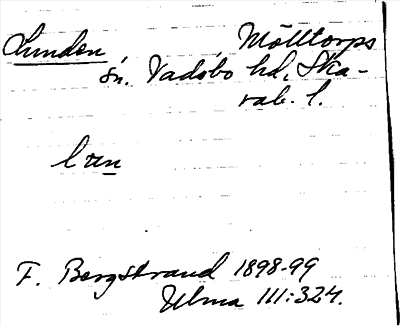 Lunden Mölltorps
sn. Vadsbo hd, Ska-
rab. l.
F. Bergstrand 1898-99
Ulma 111:324.